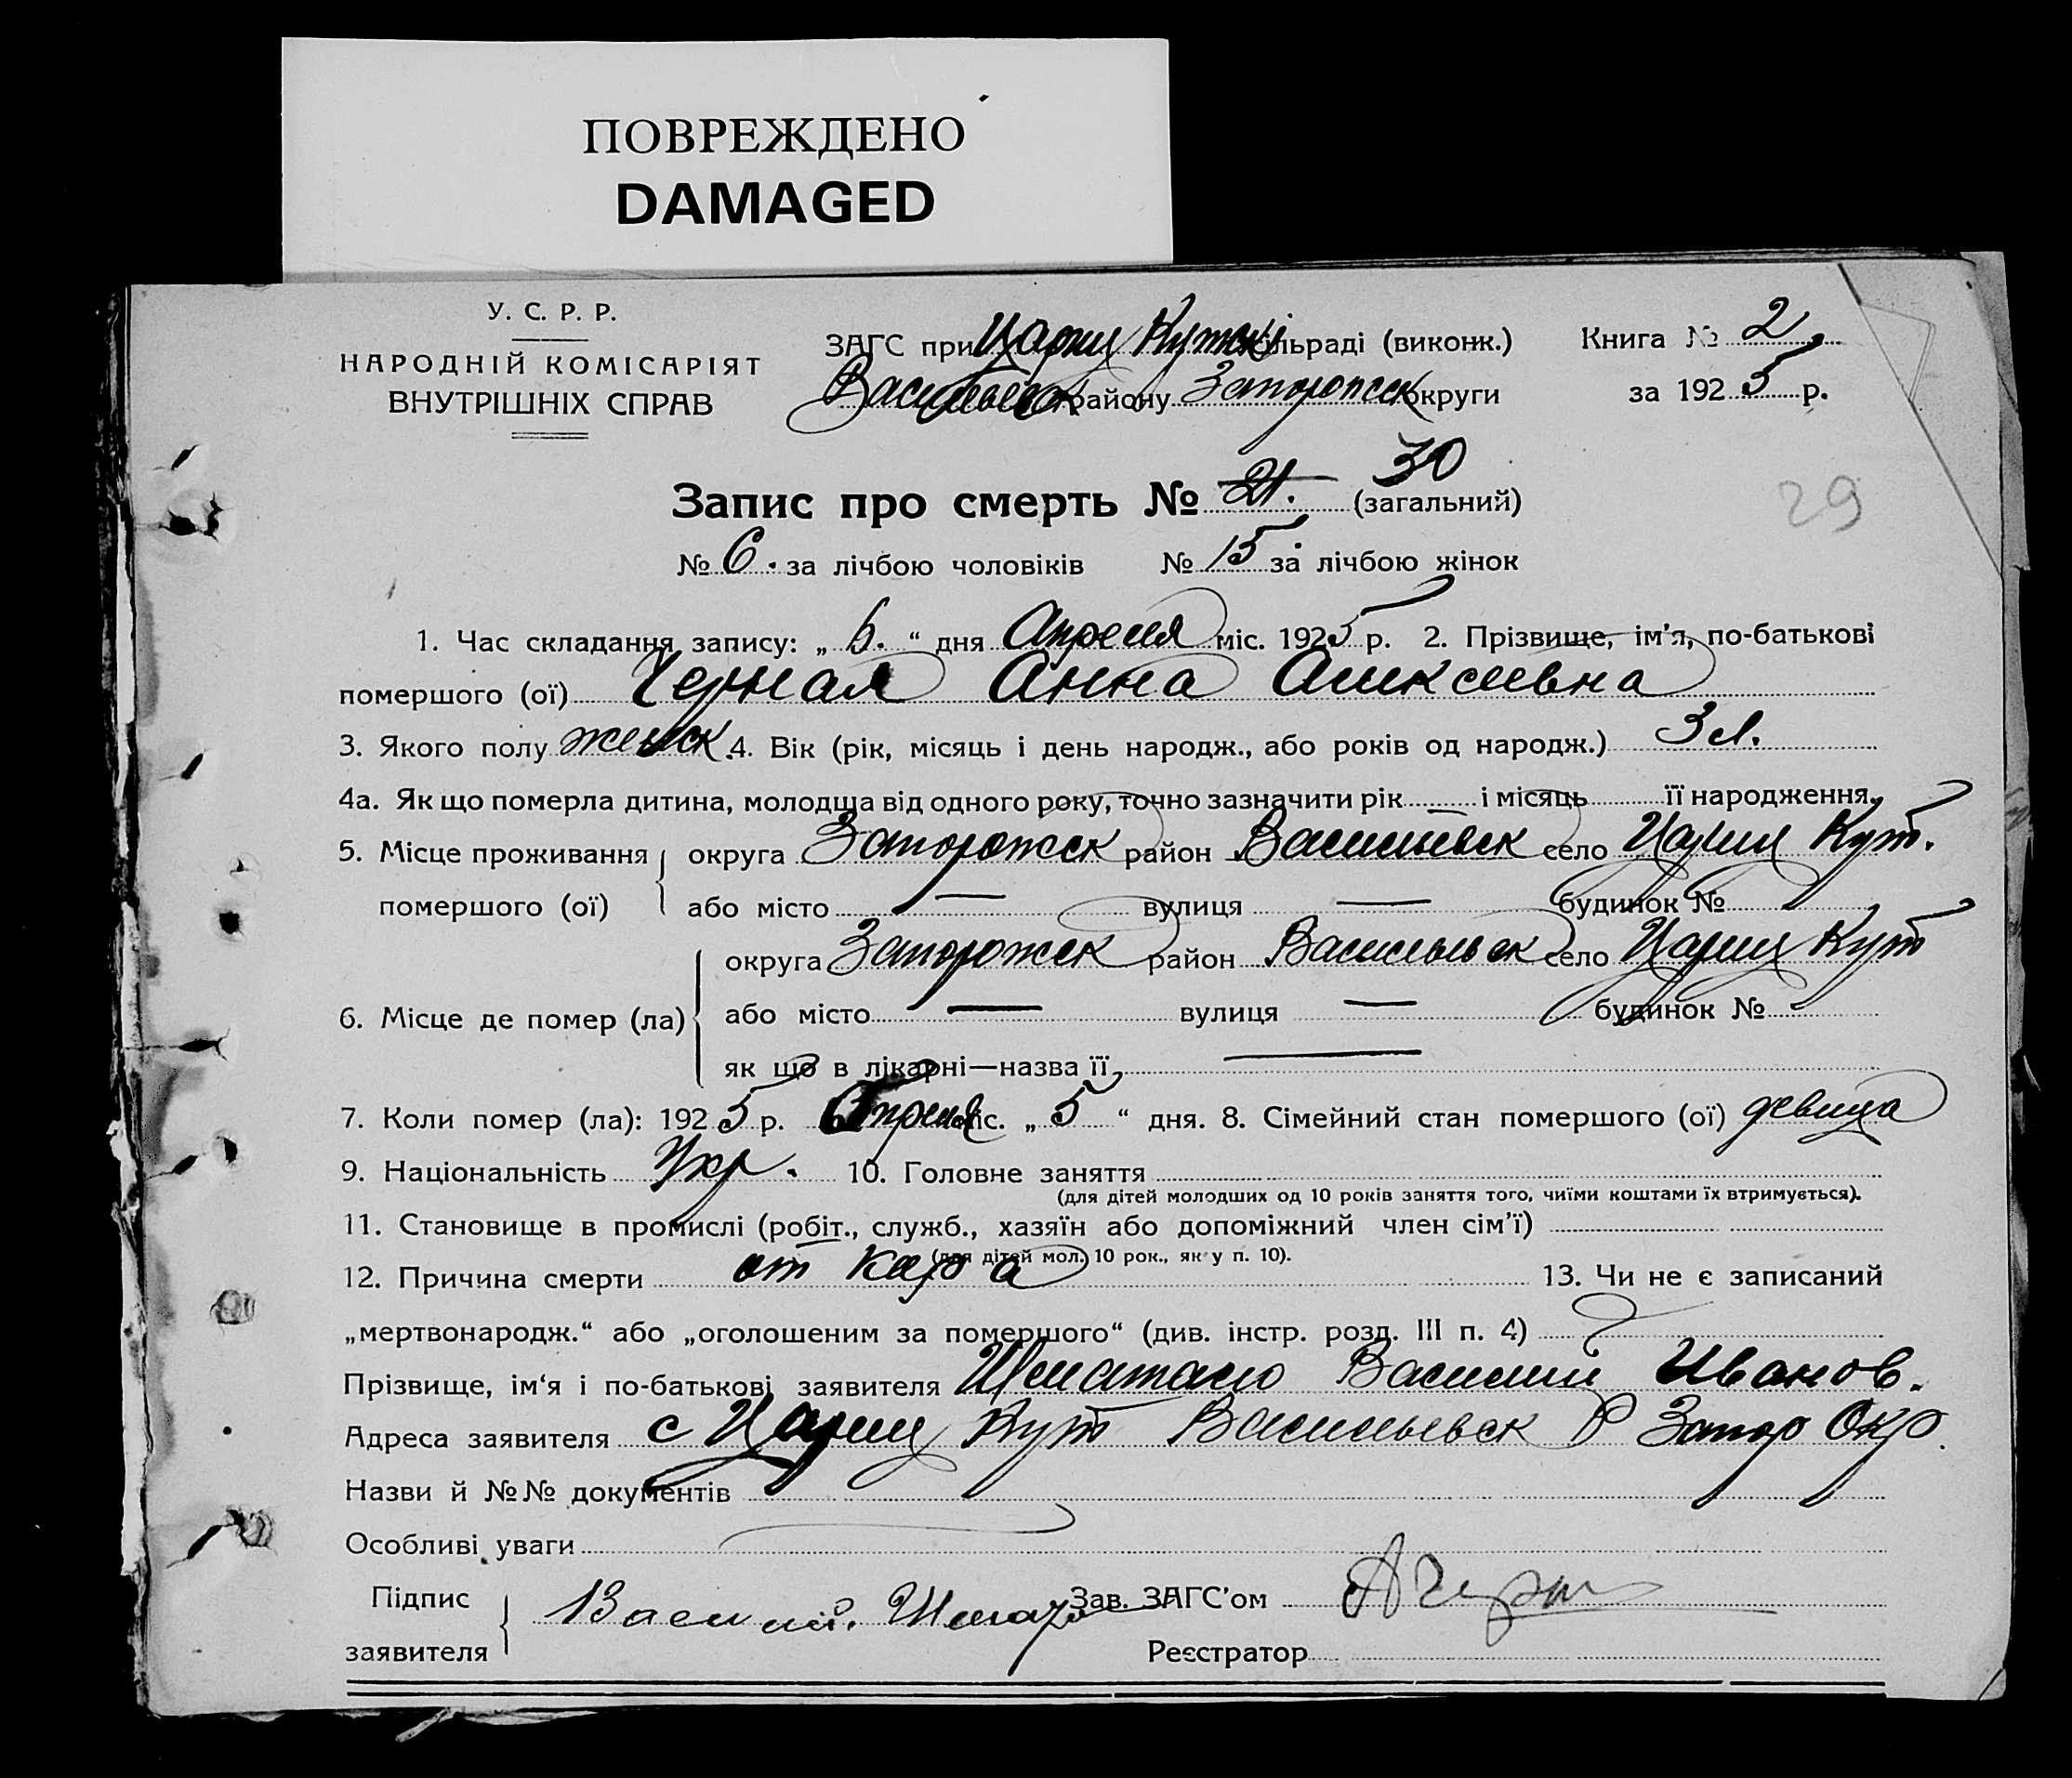 ПОВРЕЖДЕНО
DAMAGED
У. С. Р. Р.
НАРОДНІЙ КОМІСАРІЯТ
ВНУТРІШНІХ СПРАВ
ЗАГС при Цариц Кутскі сільраді (виконк.)
Васильевск району Запорожск округи
Книга № 2
за 1925 р.
Запис про смерть № 21. 30 (загальний)
29
№ 6. за лічбою чоловіків № 15. за лічбою жінок
1. Час складання запису: „ 6. “ дня Апреля міс. 1925 р. 2. Прізвище, ім’я, по-батькові
помершого (ої) Черная Анна Алексеевна
3. Якого полу женск. 4. Вік (рік, місяць і день народж., або років од народж.) 3 л.
4а. Як що померла дитина, молодша від одного року, точно зазначити рік — і місяць її народження.
5. Місце проживання округа Запорожск район Васильевск село Цариц Кут.
помершого (ої) або місто — вулиця — будинок №
округа Запорожск район Васильевск село Цариц Кут
6. Місце де помер (ла) або місто — вулиця — будинок №
як що в лікарні—назва її —
7. Коли помер (ла): 1925 р. Апреля міс. „ 5 “ дня. 8. Сімейний стан помершого (ої) девица
9. Національність Укр. 10. Головне заняття
(для дітей молодших од 10 років заняття того, чиїми коштами їх втримується).
11. Становище в промислі (робіт., служб., хазяїн або допоміжний член сім’ї)
(для дітей мол. 10 рок., як у п. 10).
12. Причина смерти от 13. Чи не є записаний
„мертвонародж.“ або „оголошеним за помершого“ (див. інстр. розд. III п. 4)
Прізвище, ім‘я і по-батькові заявителя Василий Иванов.
Адреса заявителя с Цариц Кут Васильевск Р Запор Окр.
Назви й №№ документів
Особливі уваги
Підпис
заявителя Василий.
Зав. ЗАГС’ом
Реєстратор